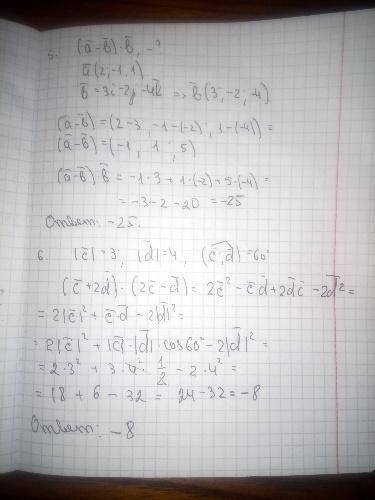 5. (a̅-b̅)·b̅, -?
a̅(2;-1;1)
b̅=3i-2j-4k => b̅(3;-2;-4)
(a̅-b̅)=(2-3; -1-(-2); 1-(-4))=
(a̅-b̅)=(-1; 1; 5)
(a̅-b̅)·b̅=-1·3+1·(-2)+5·(-4)=
=-3-2-20=-25
Ответ: -25.
6. |c̅|=3, |d̅|=4, (c̅;d̅)=60°
(c̅+2d̅)·(2c̅-d̅)=2c̅²-c̅d̅+2d̅c̅-2d̅²=
=2|c̅|²+c̅·d̅-2|d̅|²=
=2|c̅|²+|c̅|·|d̅|·cos60°-2|d̅|²=
=2·3²+3·4·1/2-2·4²=
=18+6-32=24-32=-8
Ответ: -8